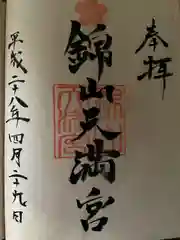 奉拝
錦山天満宮
平成二十八年四月二十九日